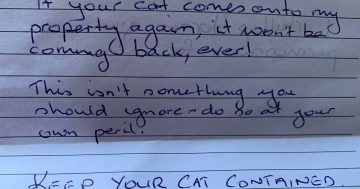 If your cat comes onto my
property again, it won't be
coming back, ever!
This isn't something you
should ignore - do so at your
own peril.
KEEP YOUR CAT CONTAINED